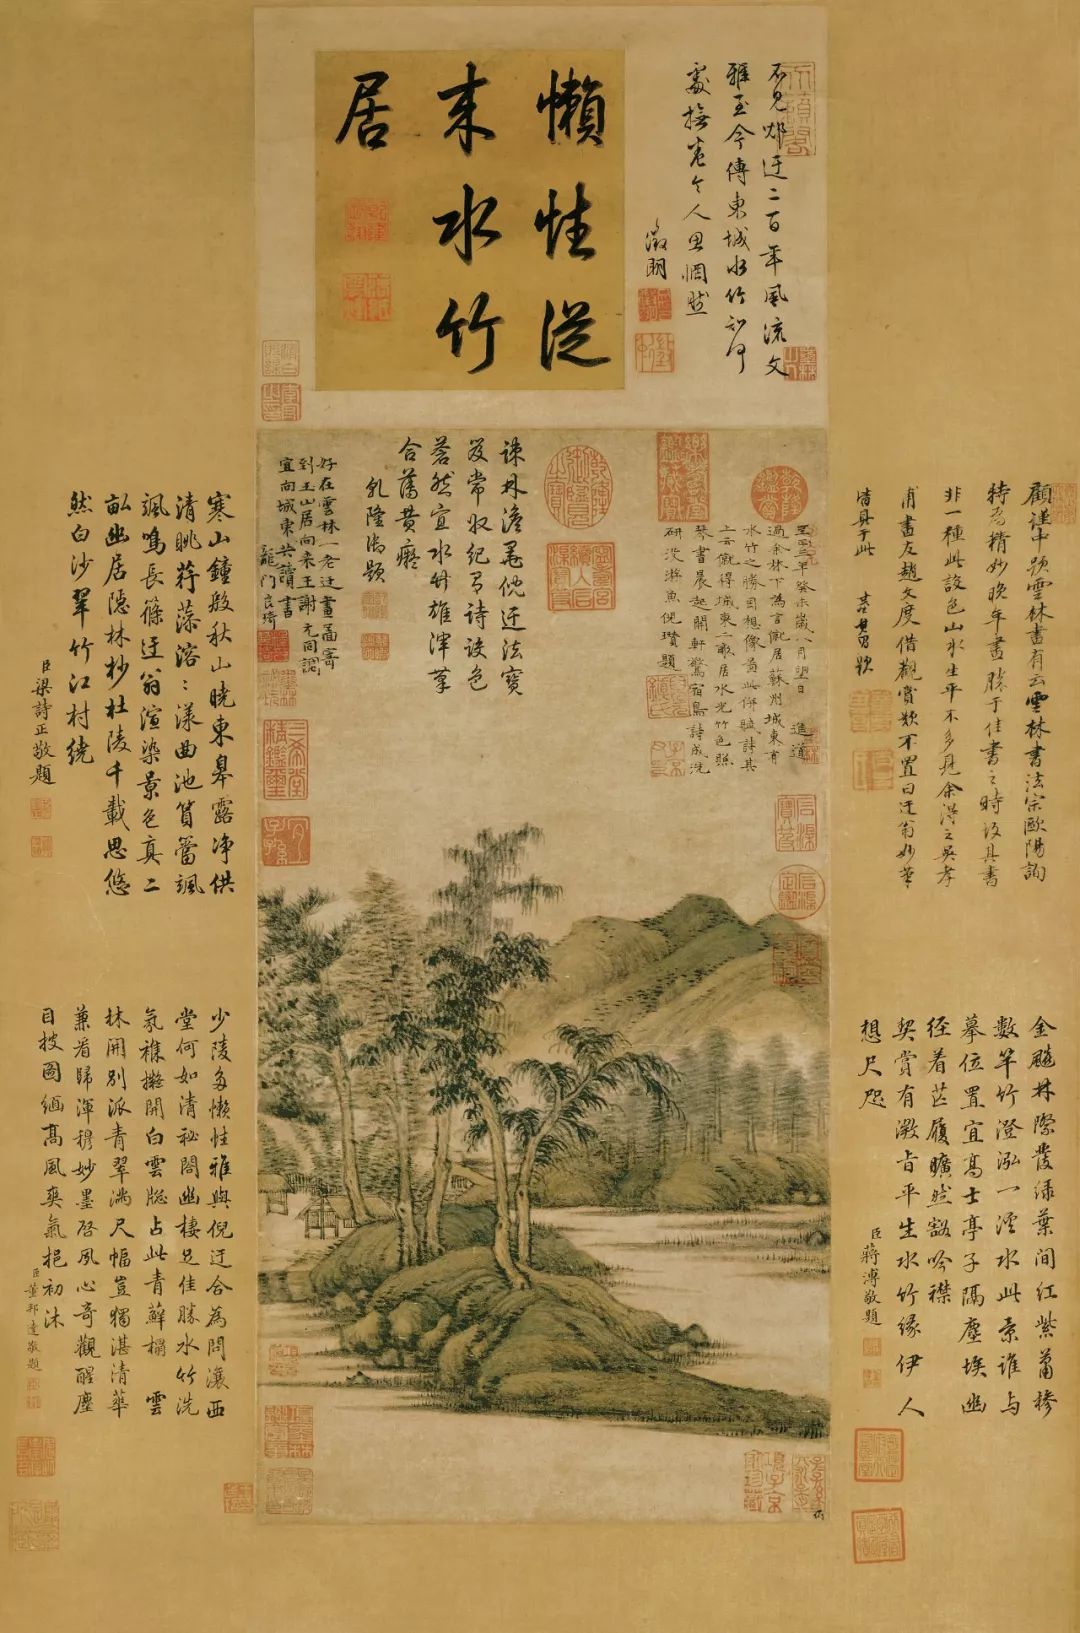 懶性從
來水竹
居
不見倪迂二百年風流文
雅至今傳東城水竹知何
處撫卷令人思惘然
徵明
至正三年癸未歲八月望日進道
過余林下為言僦居蘇州城東有
水竹之勝因想像圖此併賦詩其
上云僦得城東二畝居水光竹色照
琴書晨起開軒驚宿鳥詩成洗
研沒游魚倪瓚題
疎林澹靄倪迂法寶
笈常收紀月詩設色
蒼然宜水竹雄渾筆
合黃癡
乾隆御題
好在雲林一老迂畫圖寄
到玉山居向來王謝元同調
宜向城東共讀書
龍門良琦
顧謹中題雲林畫有云雲林書法宗歐陽詢
特為精妙晚年畫勝于佳書之時故其書
非一種此設色山水生平不多見余得之吳孝
甫畫友趙文度借觀賞歎不置曰迂翁妙筆
皆具于此 其昌題
金飇林際發綠葉間紅紫蕭槮
數竿竹澄泓一溪水此景誰與
摹位置宜高士亭子隔塵埃幽
徑着芒履曠然豁吟襟
契賞有微旨平生水竹緣伊人
想尺咫
臣蔣溥敬題
寒山鐘殷秋山曉東臯露淨供
清眺荇藻溶溶漾曲池篔簹颯
颯鳴長篠迂翁渲染景色真二
畝幽居隱林杪杜陵千載思悠
然白沙翠竹江村繞
臣梁詩正敬題
少陵多懶性雅與倪迂合為問瀼西
堂何如清祕閣幽棲足佳勝水竹洗
氛襍擬開白雲牎占此青蘚榻 雲
林開別派青翠滿尺幅豈獨湛清華
兼看歸渾穆妙墨啓夙心奇觀醒塵
目披圖緬高風爽氣挹初沐
臣董邦達敬題